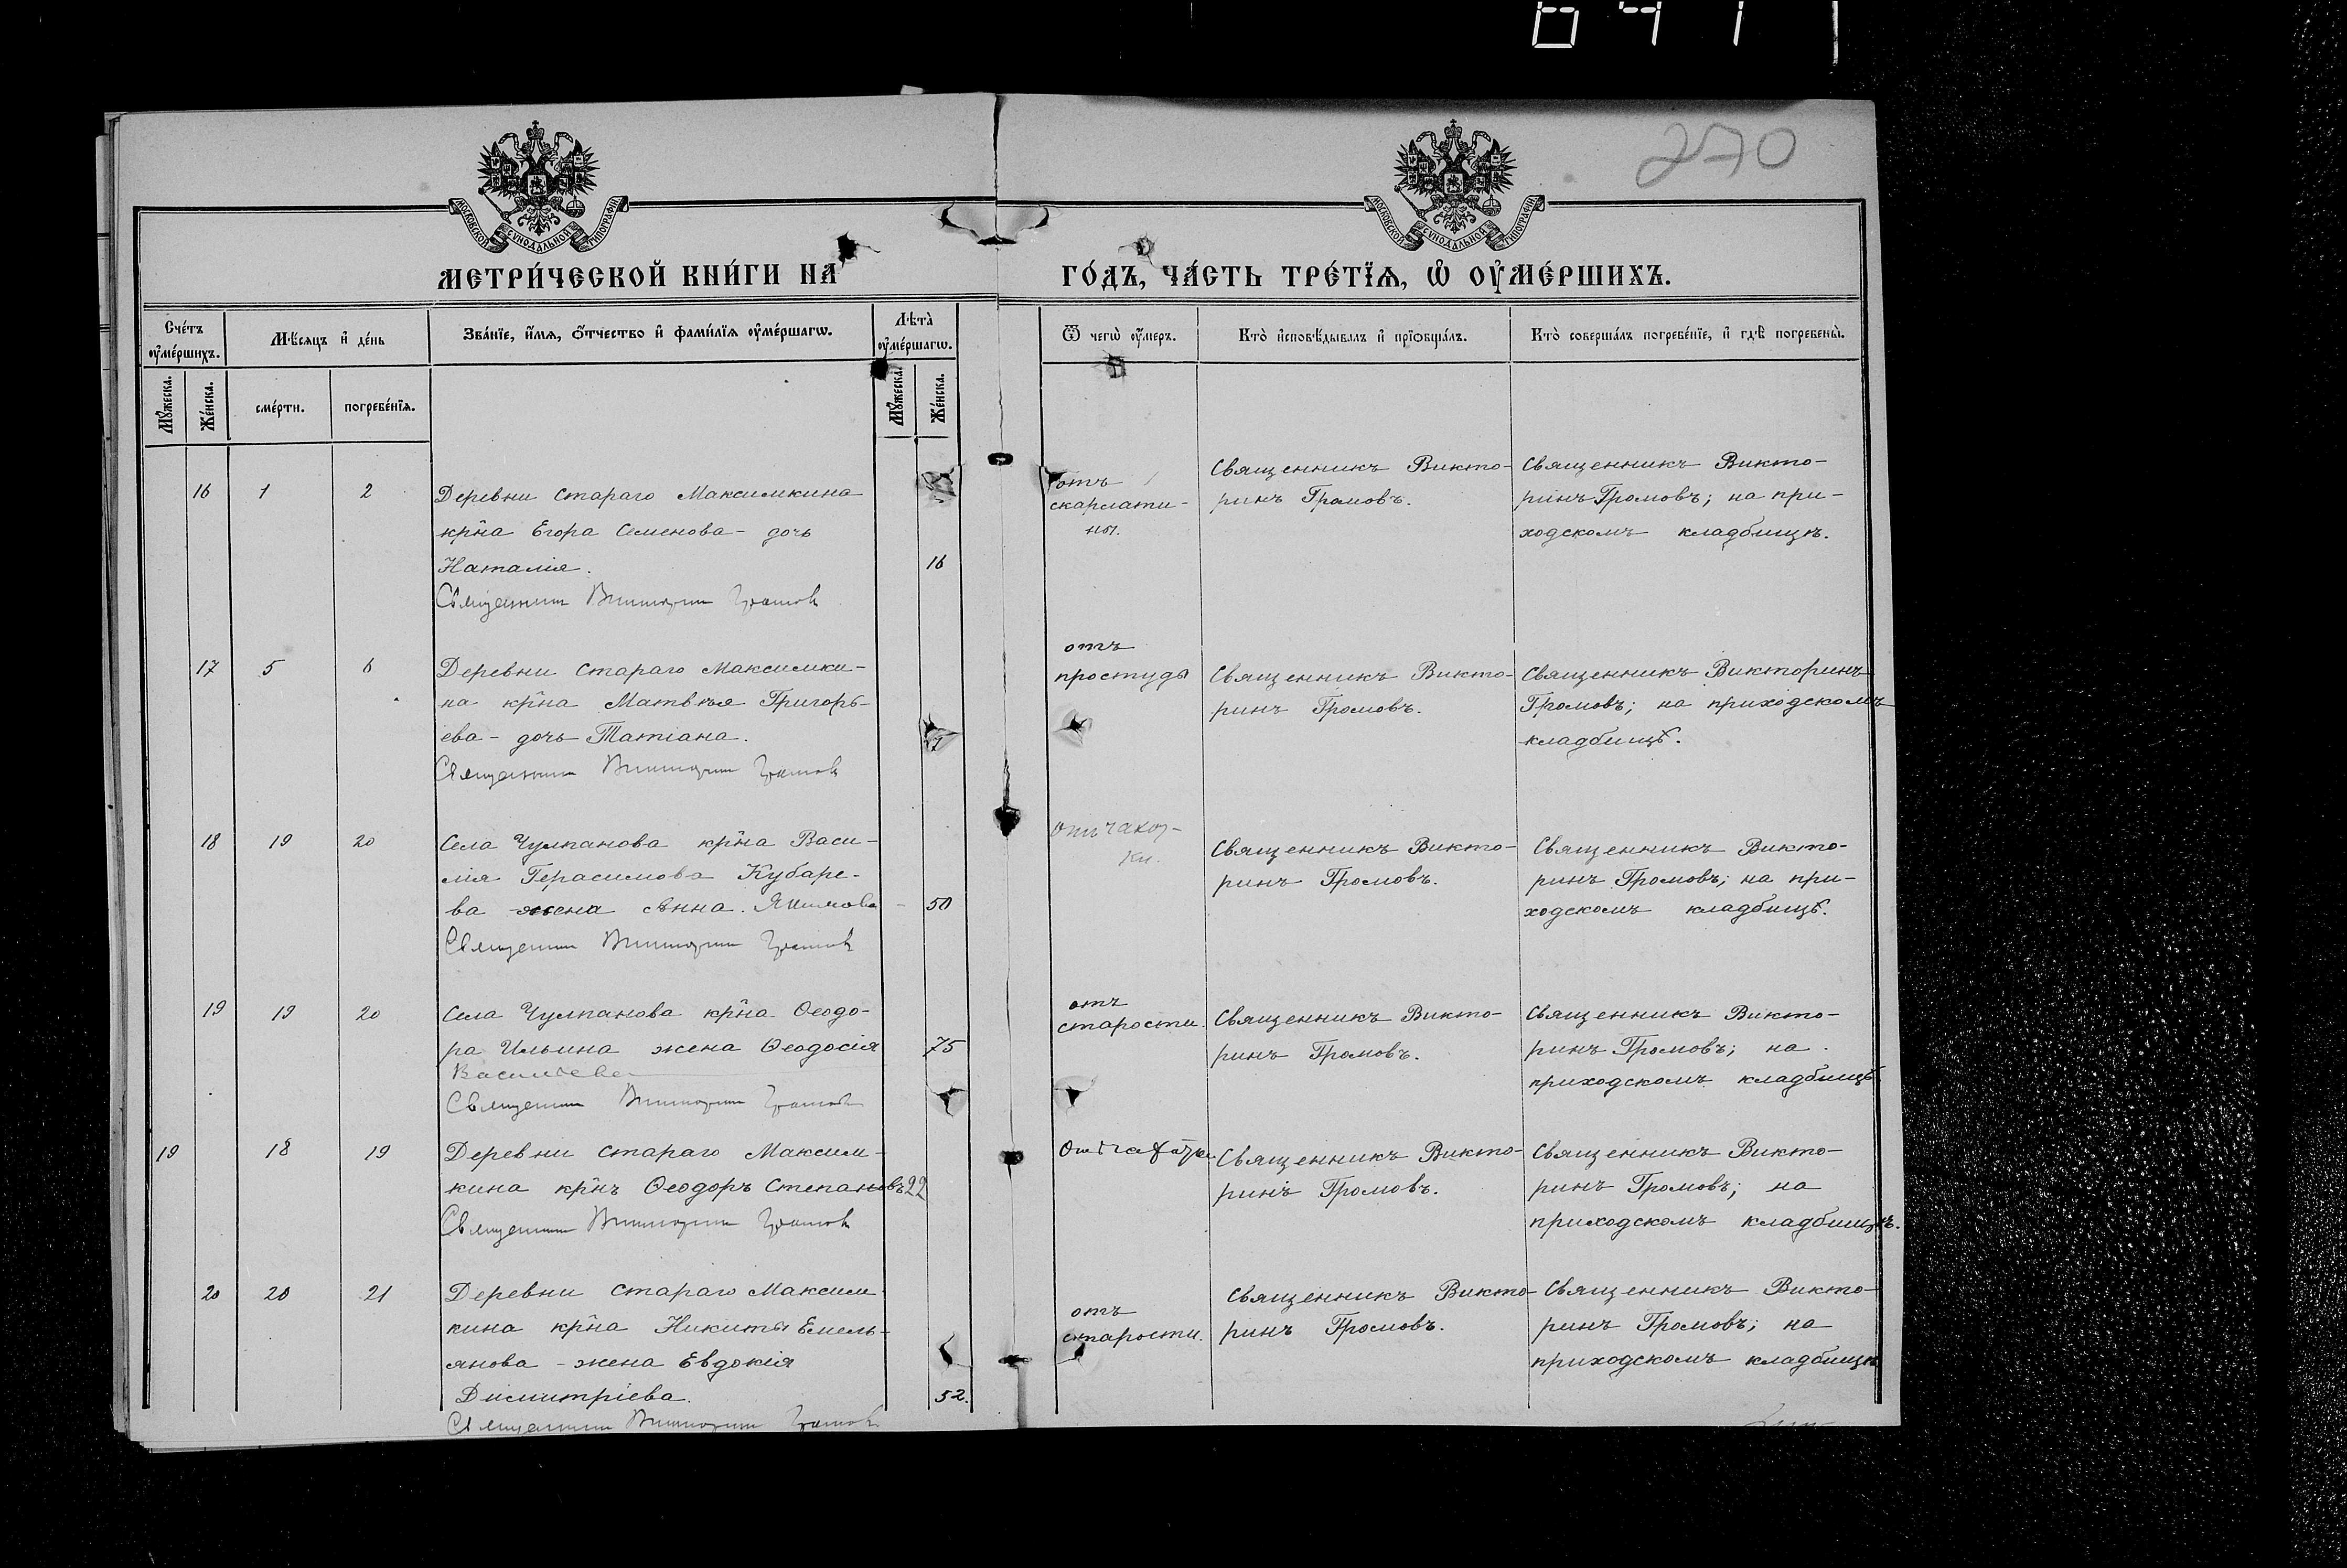 270
МОСКОВСКОЙ СѴНОДАЛЬНОЙ ТИПОГРАФІИ
МОСКОВСКОЙ СѴНОДАЛЬНОЙ ТИПОГРАФІИ
МЕТРИ́ЧЕСКОЙ КНИ́ГИ НА ГО́ДЪ, ЧА́СТЬ ТРЕ́ТЇѦ, Ѡ҆ ОУ҆МЕ́РШИХЪ.
Сче́тъ оу҆ме́ршихъ.
Мѣ́сяцъ и҆ де́нь
Зва́нїе, и҆́мя, ѻ҆́тчество и҆ фами́лїя оу҆ме́ршагѡ.
Лѣта̀ оу҆ме́ршагѡ.
Ѿ чегѡ̀ оу҆́меръ.
Кто̀ и҆сповѣ́дывалъ и҆ прїѡбща́лъ.
Кто̀ соверша́лъ погребе́нїе, и҆ гдѣ̀ погребены̀.
Мꙋ́жеска.
Же́нска.
сме́рти.
погребе́нїя.
Мꙋ́жеска.
Же́нска.
16 1 2
Деревни Стараго Максимкина
кр̃на Егора Семенова - дочь
Наталія. 16
Священник Викторин Громов
отъ
скарлати-
ны.
Священникъ Викто-
ринъ Громовъ.
Священникъ Викто-
ринъ Громовъ; на при-
ходскомъ кладбищѣ.
17 5 6
Деревни Стараго Максимки-
на кр̃на Матвѣя Григорь-
ева - дочь Татіана.
Священник Викторин Громов
отъ
простуды
Священникъ Викто-
ринъ Громовъ.
Священникъ Викторинъ
Громовъ; на приходскомъ
кладбищѣ.
18 19 20
Села Чулпанова кр̃на Васи-
лія Герасимова Кубаре-
ва жена Анна Якимова - 50
Священник Викторин Громов
отъ чахот-
ки.
Священникъ Викто-
ринъ Громовъ.
Священникъ Викто-
ринъ Громовъ; на при-
ходскомъ кладбищѣ.
19 19 20
Села Чулпанова кр̃на Ѳеодо-
ра Ильина жена Ѳеодосія 75
Васильева
Священник Викторин Громов
отъ
старости.
Священникъ Викто-
ринъ Громовъ.
Священникъ Викто-
ринъ Громовъ; на
приходскомъ кладбищѣ
19 18 19
Деревни Стараго Максим-
кина кр̃нъ Ѳеодоръ Степановъ 22
Священник Викторин Громов
Священникъ Викто-
ринъ Громовъ.
Священникъ Викто-
ринъ Громовъ; на
приходскомъ кладбищѣ.
20 20 21
Деревни Стараго Максим-
кина кр̃на Никиты Емель-
янова - жена Евдокія
Димитріева. 52.
Священник Викторин Громов
отъ
старости.
Священникъ Викто-
ринъ Громовъ.
Священникъ Викто-
ринъ Громовъ; на
приходскомъ кладбищѣ